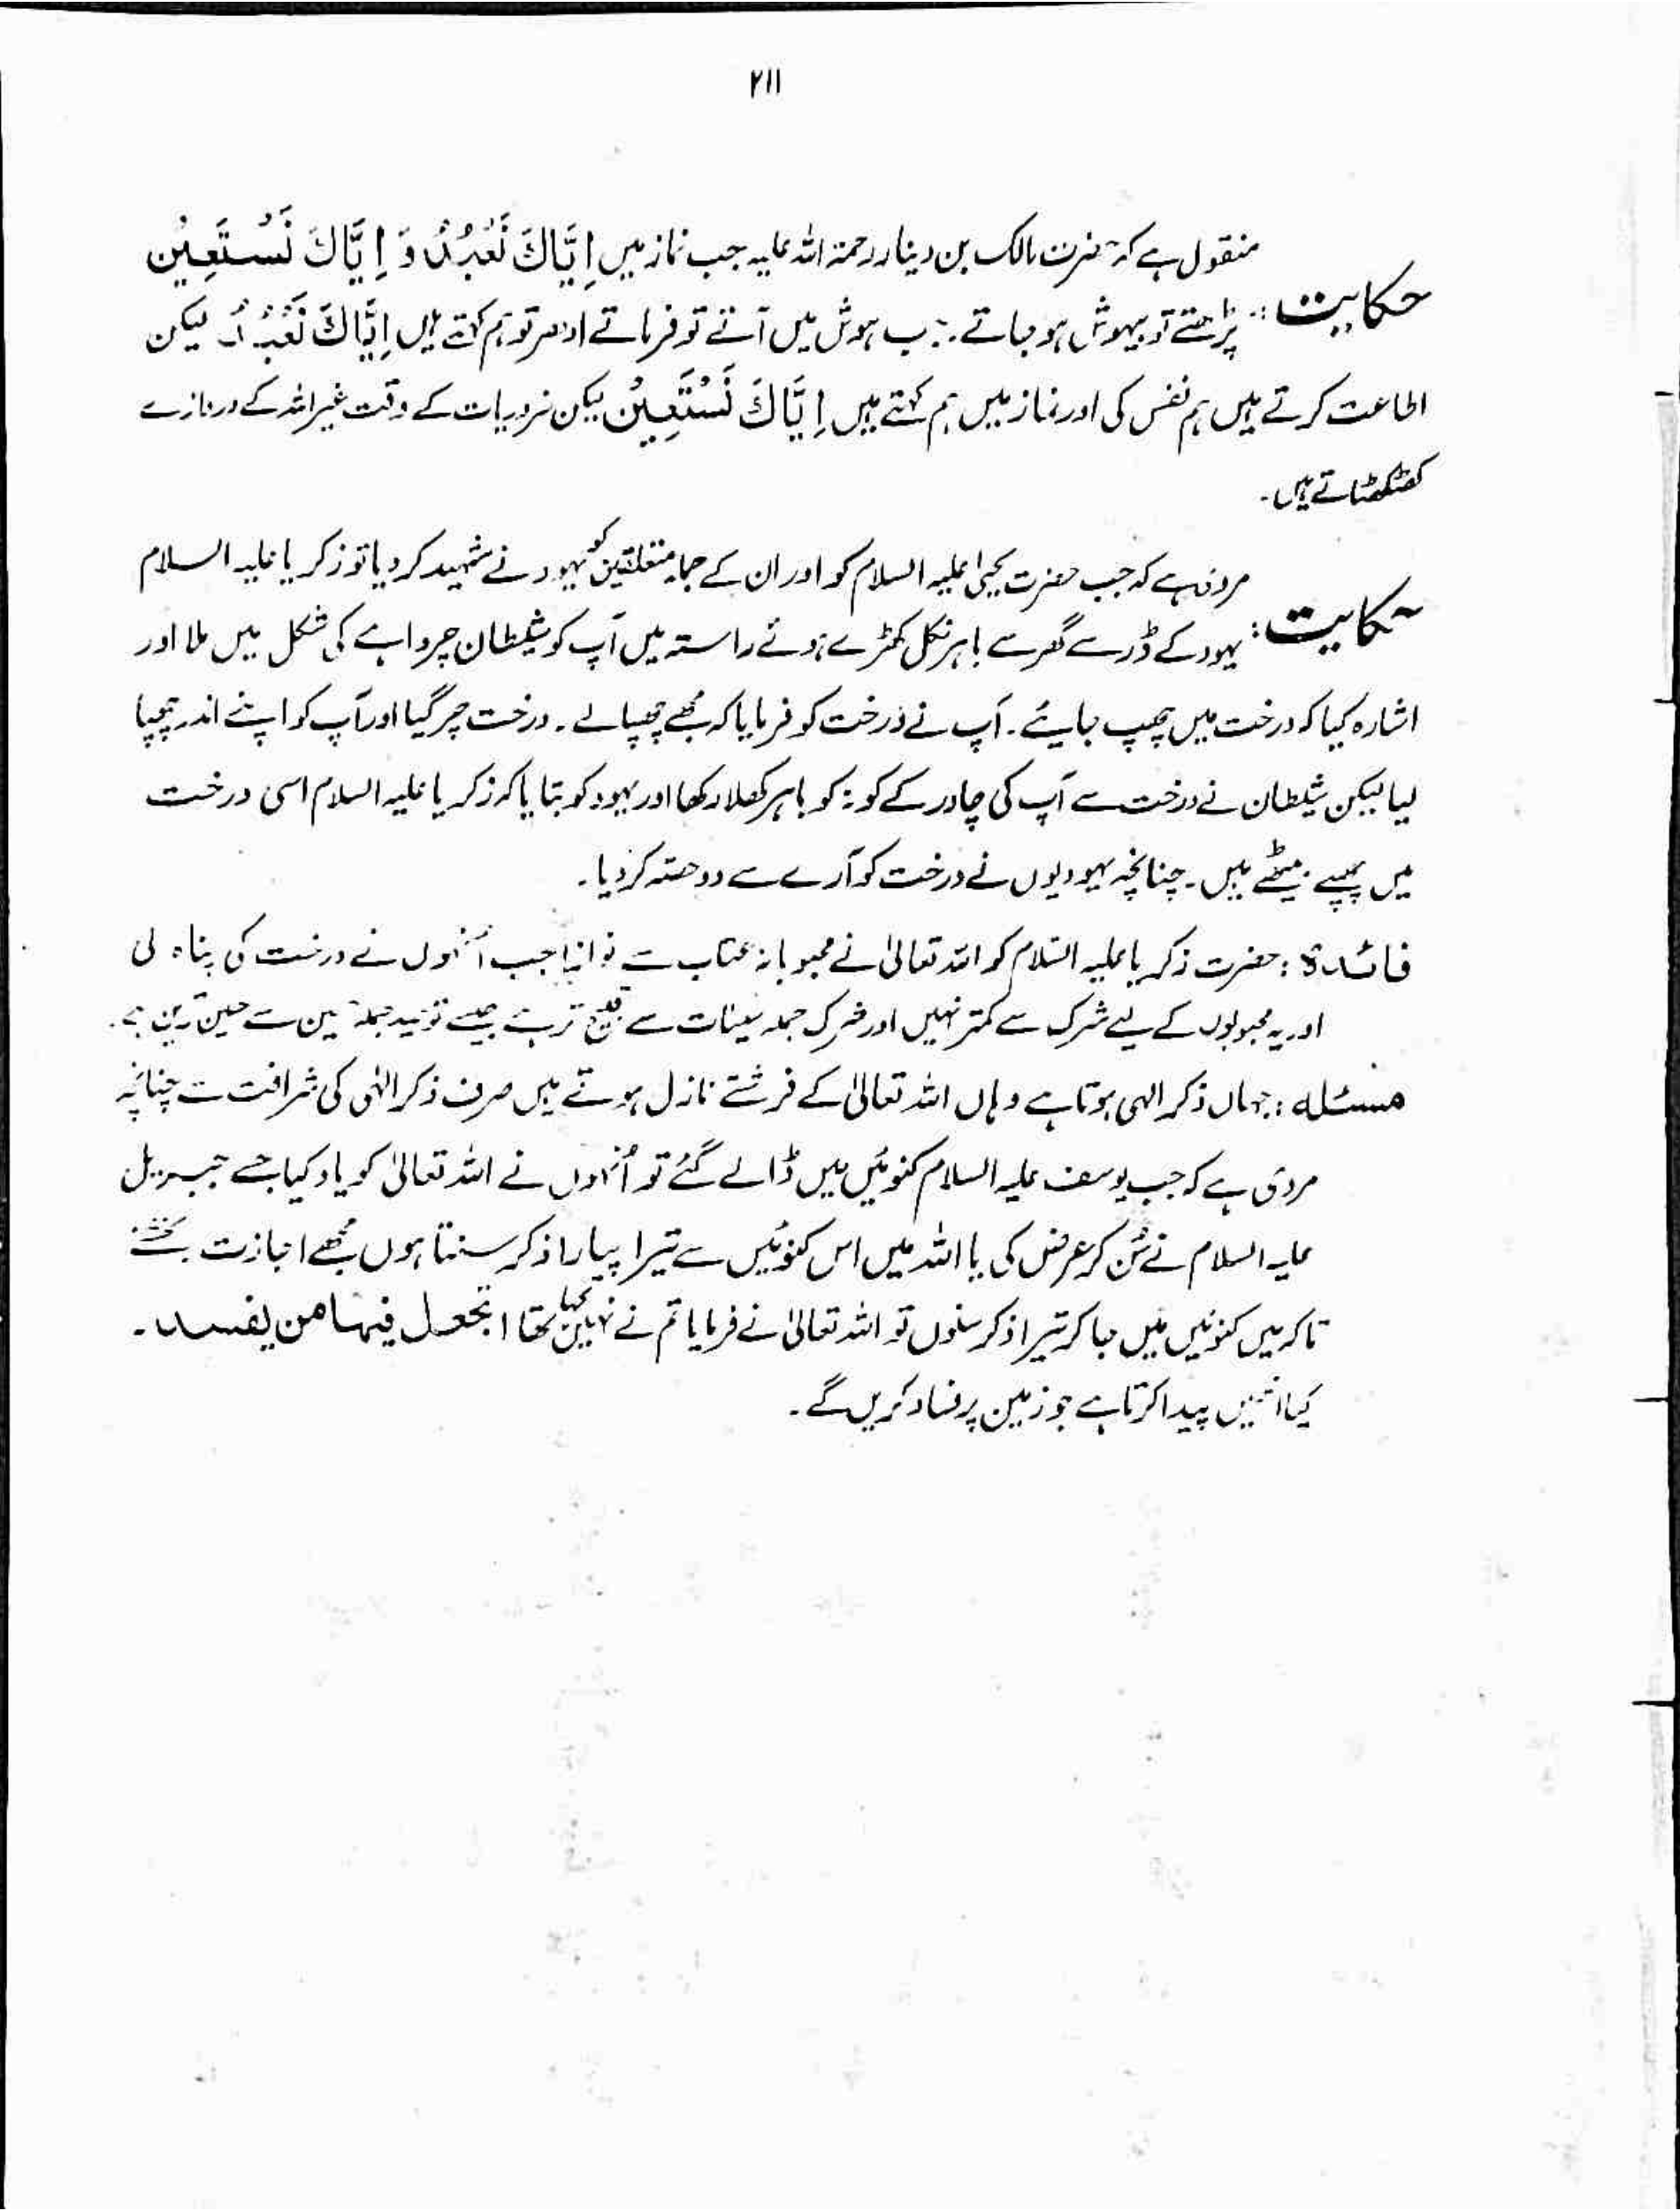 ۲۱۱
منقول ہے کہ حضرت مالک بن دینار رحمۃ اللہ علیہ جب نماز میں اِیَّاكَ نَعْبُدُ وَ اِیَّاكَ نَسْتَعِیْن
حکایت: پڑھتے تو بیہوش ہو جاتے۔ جب ہوش میں آتے تو فرماتے ادھر تو ہم کہتے ہیں اِیَّاكَ نَعْبُدُ لیکن
اطاعت کرتے ہیں ہم نفس کی اور نماز میں ہم کہتے ہیں اِیَّاكَ نَسْتَعِیْنُ لیکن ضروریات کے وقت غیر اللہ کے دروازے
کھٹکھٹاتے ہیں۔
مروی ہے کہ جب حضرت یحییٰ علیہ السلام کو اور ان کے جملہ متعلقین کو یہود نے شہید کر دیا تو زکریا علیہ السلام
حکایت: یہود کے ڈر سے گھر سے باہر نکل کھڑے ہوئے راستہ میں آپ کو شیطان چرواہے کی شکل میں ملا اور
اشارہ کیا کہ درخت میں چھپ جائیے۔ آپ نے درخت کو فرمایا کہ مجھے چھپا لے۔ درخت چر گیا اور آپ کو اپنے اندر چھپا
لیا لیکن شیطان نے درخت سے آپ کی چادر کے کونہ کو باہر کھلا رکھا اور یہود کو بتایا کہ زکریا علیہ السلام اسی درخت
میں چھپے بیٹھے ہیں۔ چنانچہ یہودیوں نے درخت کو آرے سے دو حصتہ کر دیا۔
فائدہ: حضرت زکریا علیہ السلام کو اللہ تعالیٰ نے محبوبانہ عتاب سے نوازا جب اُنہوں نے درخت کی پناہ لی
اور یہ محبوبوں کے لیے شرک سے کمتر نہیں اور شرک جملہ سیئات سے قبیح تر ہے جیسے توحید جملہ سے حسین ترین ہے۔
مسئلہ: جہاں ذکر الہی ہوتا ہے وہاں اللہ تعالیٰ کے فرشتے نازل ہوتے ہیں صرف ذکر الٰہی کی شرافت سے چنانچہ
مروی ہے کہ جب یوسف علیہ السلام کنوئیں میں ڈالے گئے تو اُنہوں نے اللہ تعالیٰ کو یاد کیا جسے جبریل
علیہ السلام نے سُن کر عرض کی یا اللہ میں اس کنوئیں سے تیرا پیارا ذکر سنتا ہوں مُجھے اجازت بخشئے
تاکہ میں کنوئیں میں جا کر تیرا ذکر سنوں تو اللہ تعالیٰ نے فرمایا تم نے نہیں کہا تھا اتجعل فیہا من یفسد۔
کیا انہیں پیدا کرتا ہے جو زمین پر فساد کریں گے۔